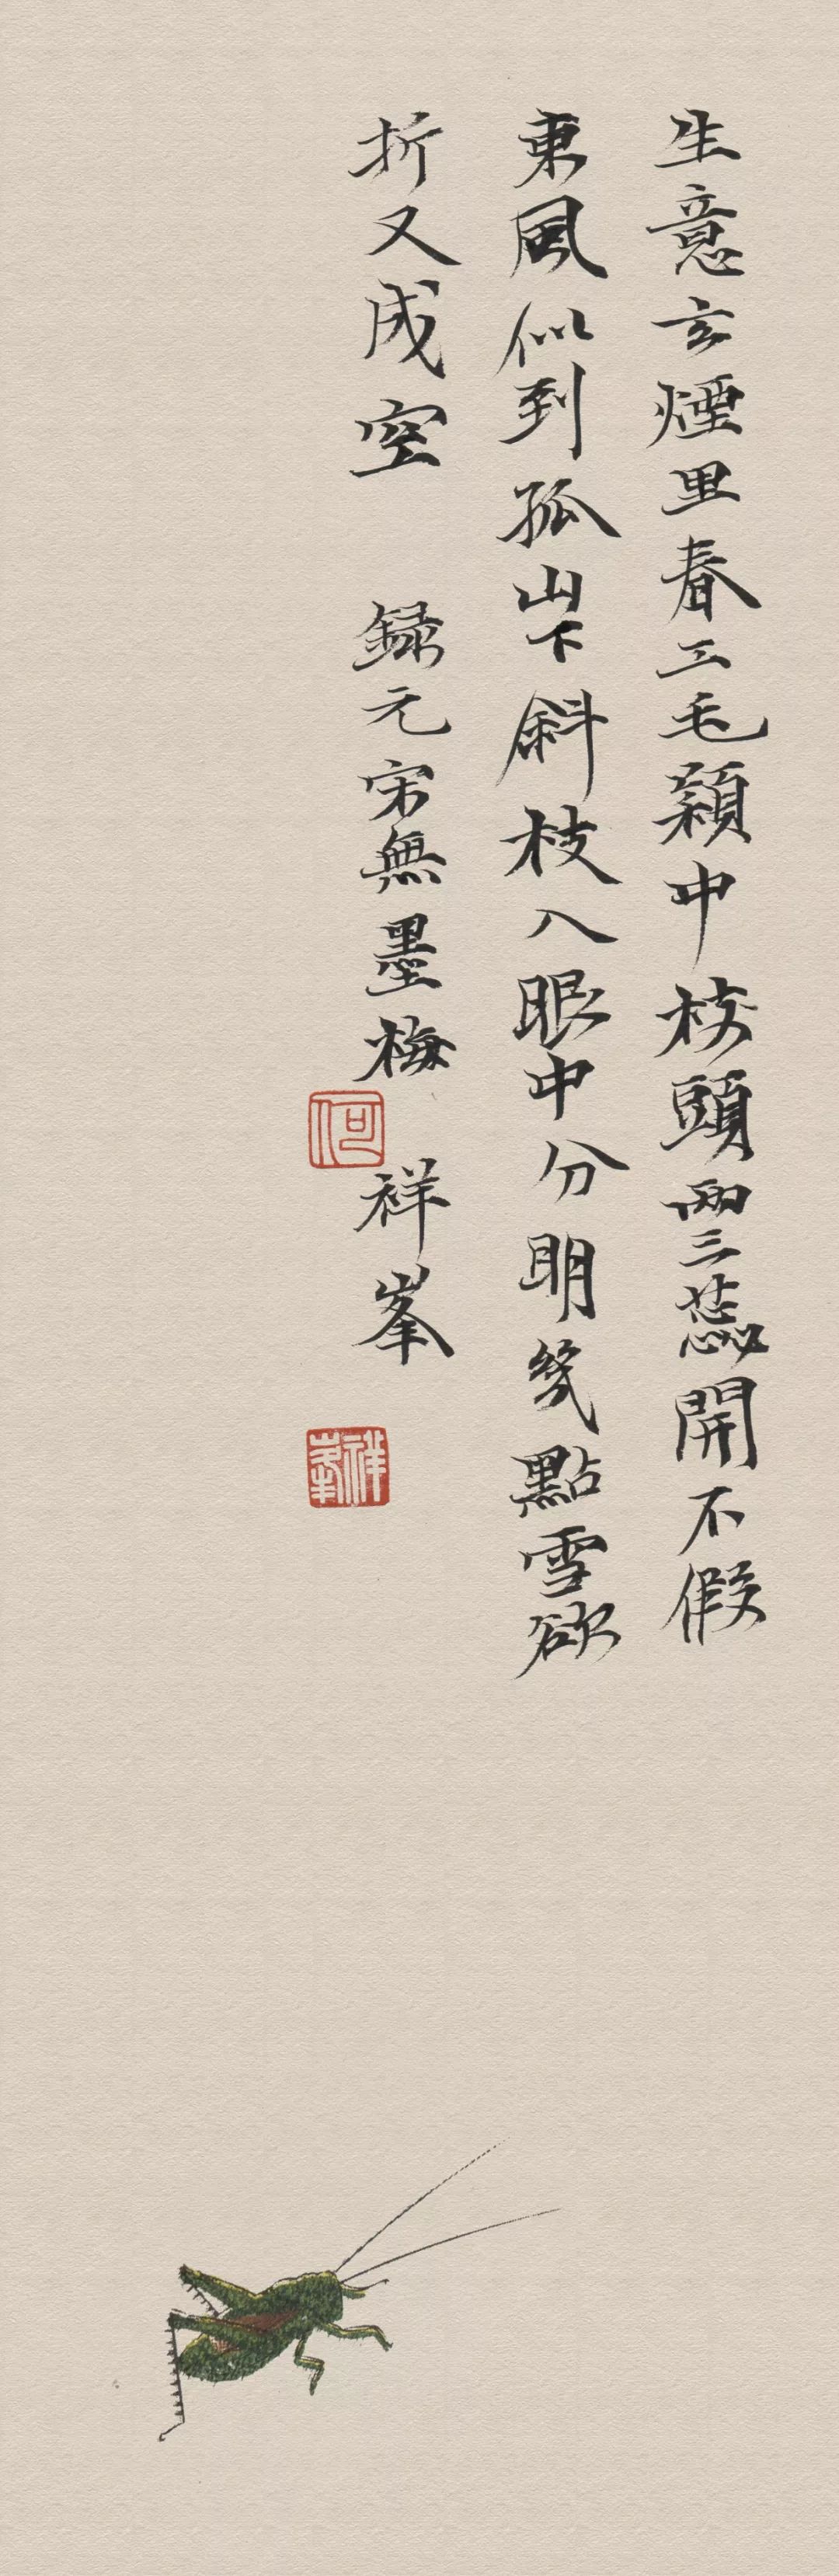 生意玄煙里春工毛穎中枝頭兩三蕊開不假
東風似到孤山下斜枝入眼中分明幾點雪欲
折又成空 録元宋無墨梅 祥峯
何
祥峯